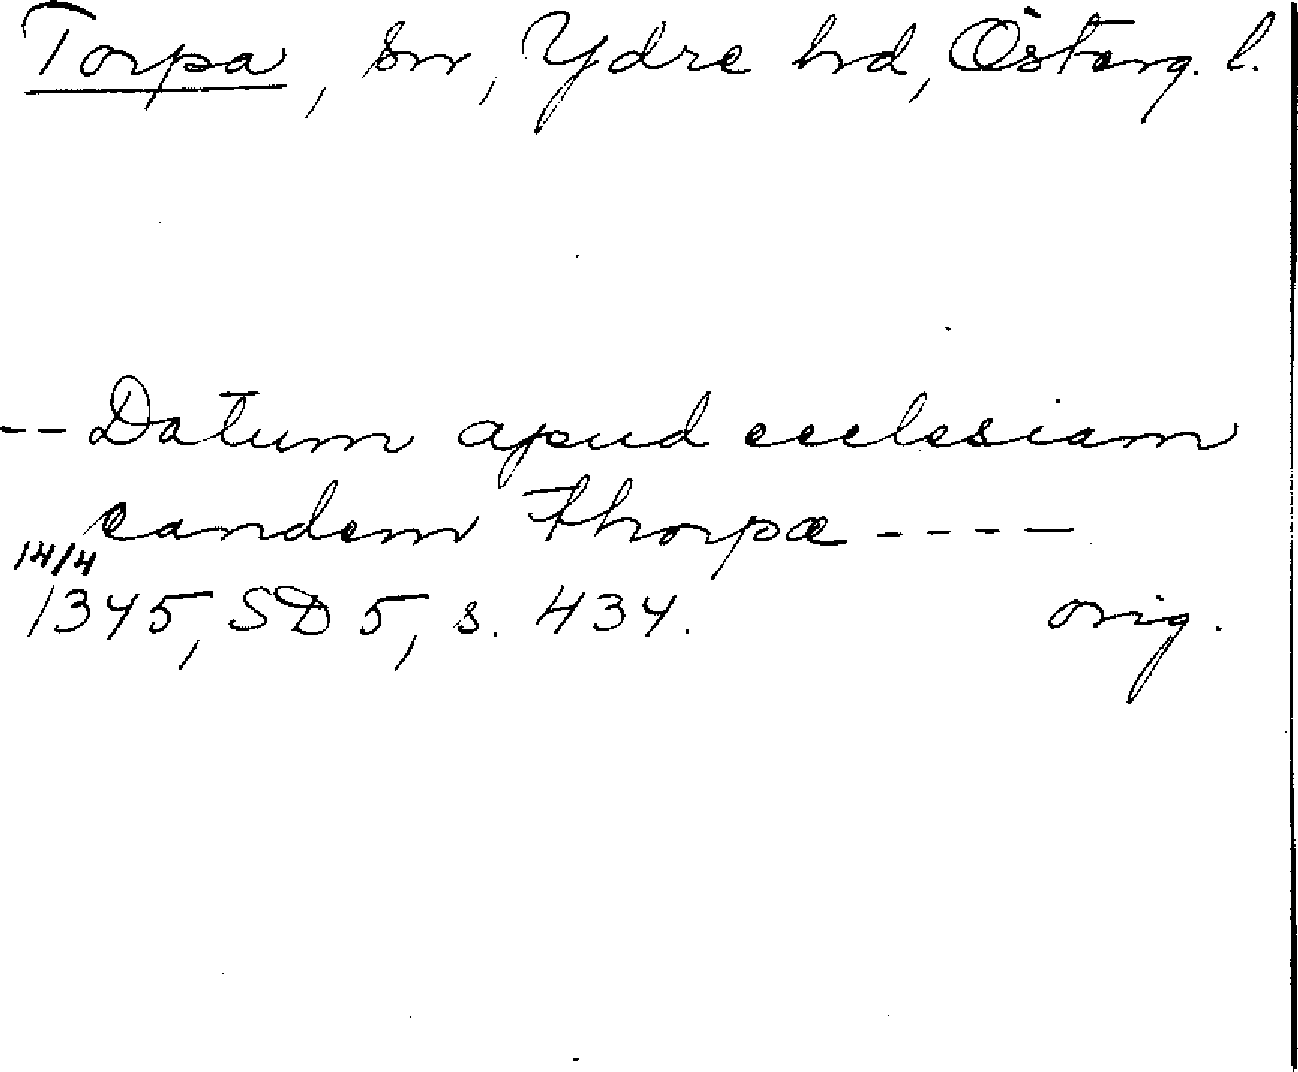 Torpa, sn, Ydre hd, Österg. l.
-- Datum apud ecclesiam
eandem thorpæ ----
14/4
1345, SD 5, s. 434. orig.